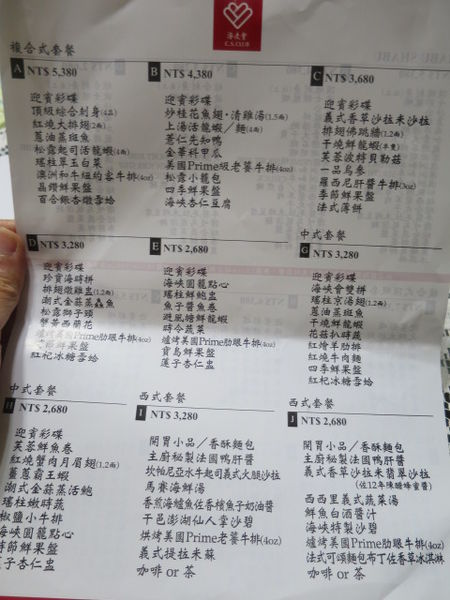 海峽會
複合式套餐
A NT$ 5,380
迎賓彩碟
頂級綜合刺身(4品)
紅燒大排翅(2兩)
蔥油蒸斑魚
松露起司活龍蝦(4兩)
瑤柱翠玉白菜
澳洲和牛紐約客牛排(4oz)
晶鑽鮮果盤
百合銀杏燉雪蛤
B NT$ 4,380
迎賓彩碟
炒桂花魚翅・清雞湯(1.5兩)
上湯活龍蝦／麵(4兩)
薏仁先知鴨
金華科甲瓜
美國Prime級老饕牛排(4oz)
松露小籠包
四季鮮果盤
海峽杏仁豆腐
C NT$ 3,680
迎賓彩碟
義式香草沙拉米沙拉
排翅佛跳牆(1.2兩)
干燒鮮龍蝦(半隻)
芙蓉波特貝勒菇
一品烏參
羅西尼肝醬牛排(3oz)
季節鮮果盤
法式薄餅
D NT$ 3,280
迎賓彩碟
珍寶海時拼
排翅燉雞盅(1.2兩)
潮式金蒜蒸鱻魚
松露獅子頭
蟹黃西蘭花
爐烤美國Prime肋眼牛排(4oz)
時節鮮果盤
紅杞冰糖雪蛤
E NT$ 2,680
迎賓彩碟
海峽圓籠點心
瑤柱鮮鮑盅
魚子醬魚卷
避風塘鮮龍蝦
時令蔬菜
爐烤美國Prime肋眼牛排(4oz)
寶島鮮果盤
蓮子杏仁盅
中式套餐
G NT$ 3,280
迎賓彩碟
海峽會雙拼
瑤柱京湯翅(1.2兩)
蔥油蒸斑魚
干燒鮮龍蝦
花菇扒時蔬
紅燴羊肋排
紅燒牛肉麵
四季鮮果盤
紅杞冰糖雪蛤
中式套餐
H NT$ 2,680
迎賓彩碟
芙蓉鮮魚卷
紅燒蟹肉月眉翅(1.2兩)
薑蔥霸王蝦
潮式金蒜蒸活鮑
瑤柱燉時蔬
椒鹽小牛排
海峽圓籠點心
時節鮮果盤
蓮子杏仁盅
西式套餐
I NT$ 3,280
開胃小品／香酥麵包
主廚秘製法國鴨肝醬
坎帕尼亞水牛起司義式火腿沙拉
馬賽海鮮湯
香煎海鱸魚佐香檳魚子奶油醬
干邑澎湖仙人掌沙碧
烘烤美國Prime老饕牛排(4oz)
義式提拉米蘇
咖啡 or 茶
西式套餐
J NT$ 2,680
開胃小品／香酥麵包
主廚秘製法國鴨肝醬
義式香草沙拉米翡翠沙拉
(佐12年陳釀蜂蜜醬)
西西里義式蔬菜湯
鮮魚白酒醬汁
海峽特製沙碧
爐烤美國Prime肋眼牛排(4oz)
法式可頌麵包布丁佐香草冰淇淋
咖啡 or 茶